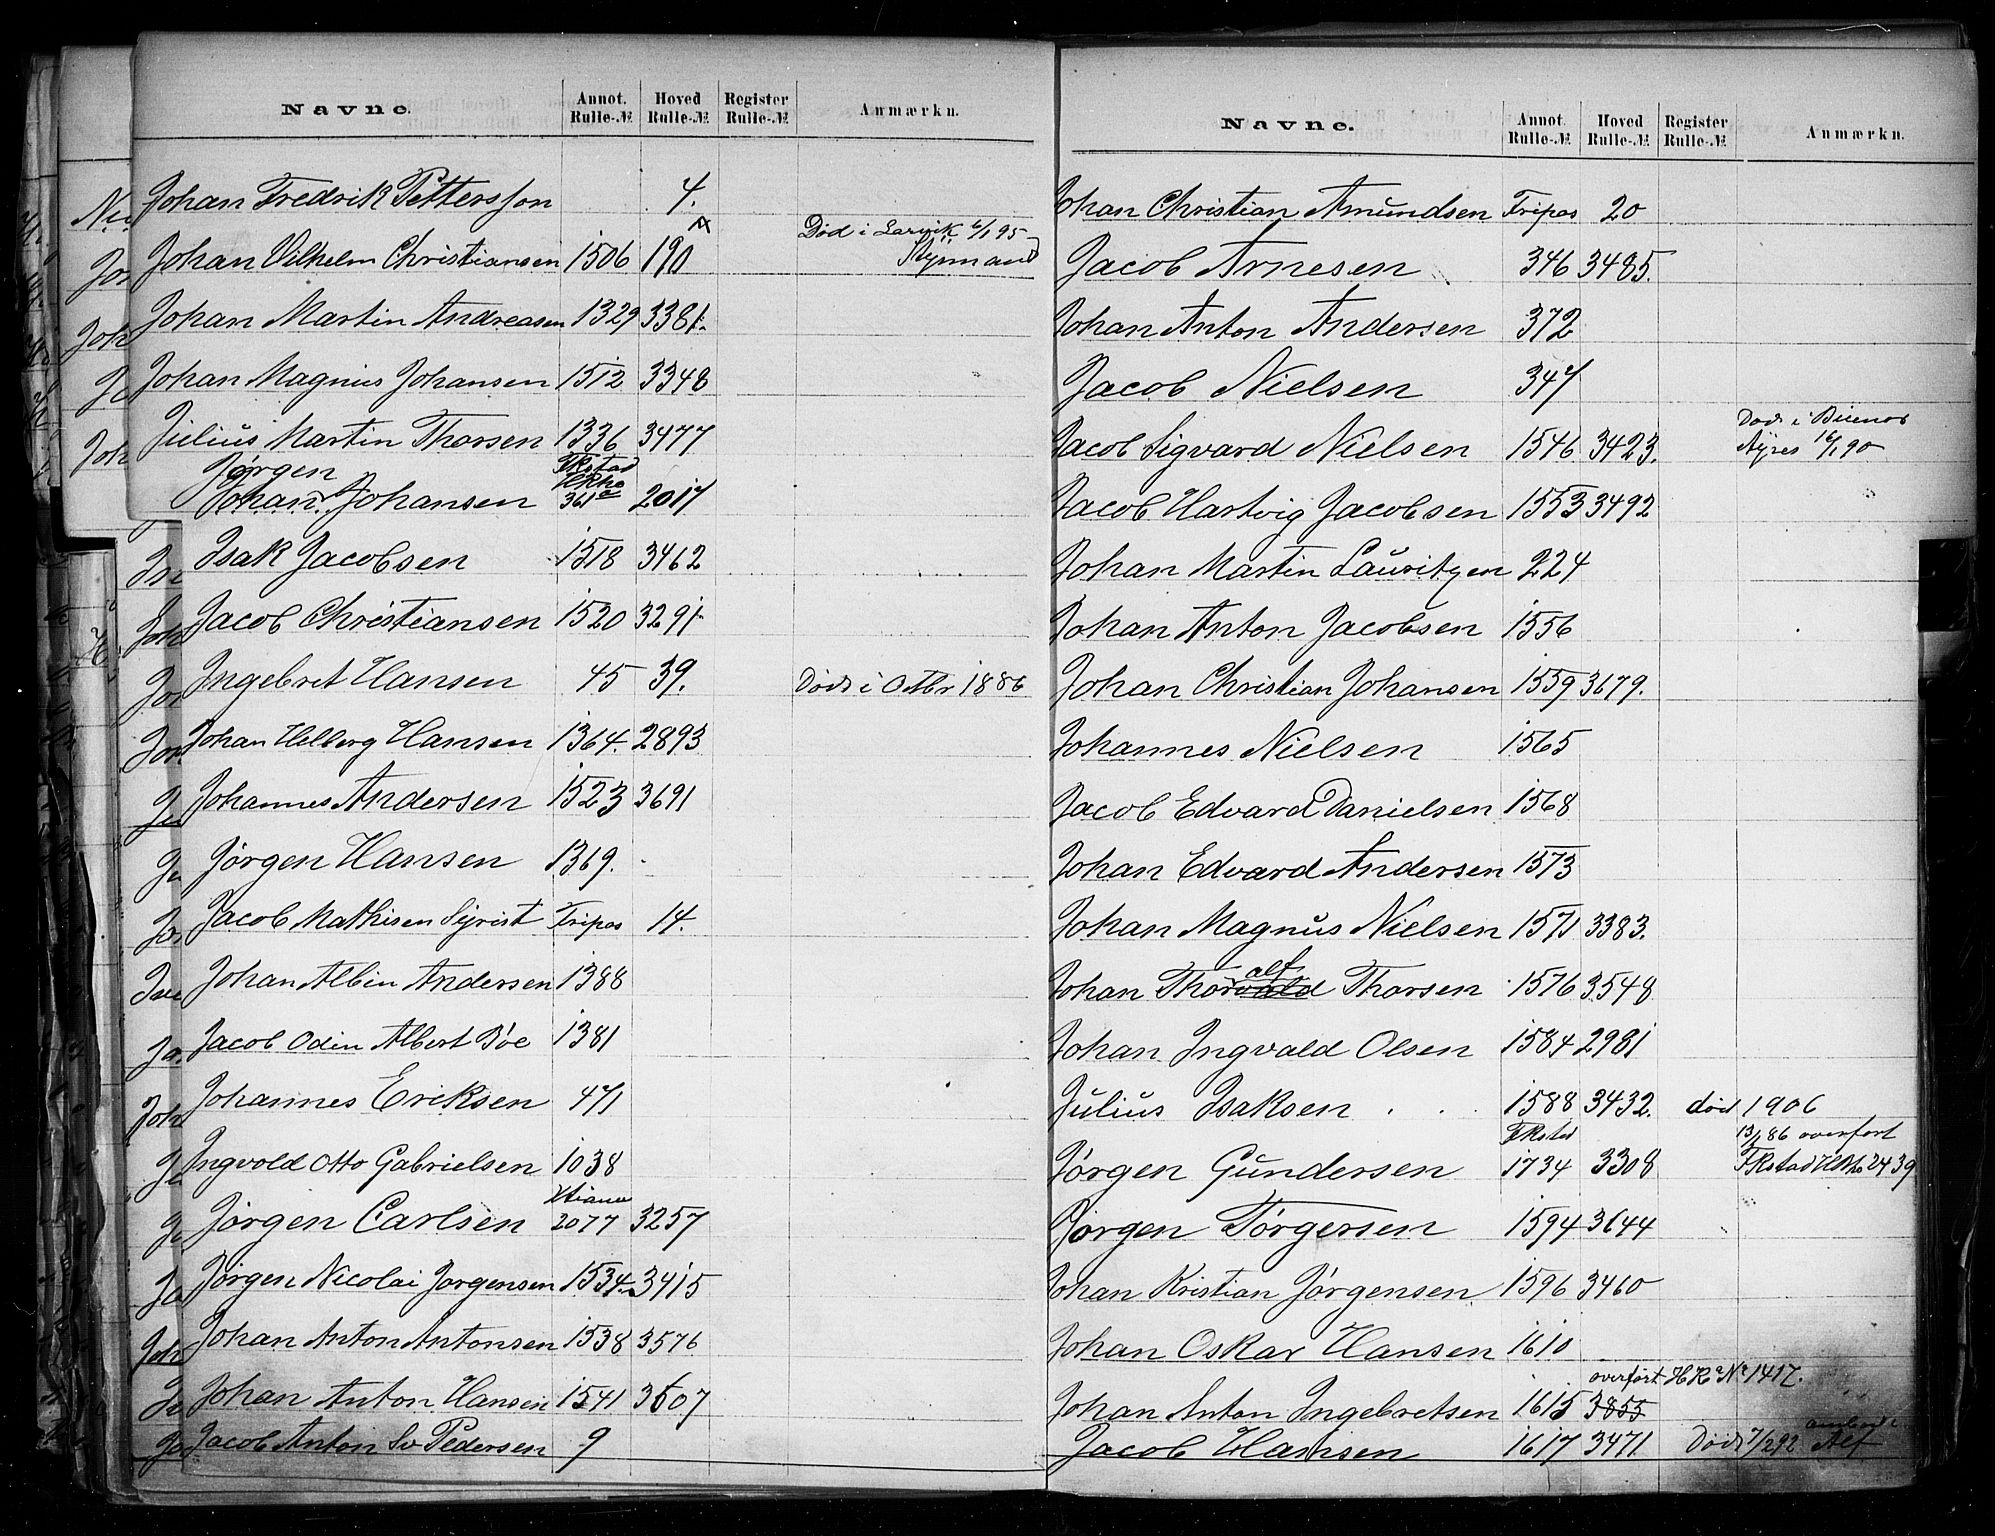 Navne. Annot. Rulle-№ Hoved Rulle-№ Register Rulle-№ Anmærkn.
Johan Fredrik Pettersson 4.
Johan Vilhelm Christiansen 1506 190 Død i Larvik 6/1 95 Styrmand
Johan Martin Andreasen 1329 3381.
Johan Magnus Johansen 1512 3348
Julius Martin Thorsen 1336 3477
Jørgen Fkstad
Johan Johansen 361 2017
Isak Jacobsen 1518 3462
Jacob Christiansen 1520 3291
Ingebret Hansen 45 39. Død i Octbr 1886
Johan Helberg Hansen 1364 2893
Johannes Andersen 1523 3691
Jørgen Hansen 1369.
Jacob Mathisen Syrist Tripos 14.
Johan Albin Andersen 1388
Jacob Odin Albert Bøe 1381
Johannes Eriksen 471
Ingvold Otto Gabrielsen 1038
Xtiania
Jørgen Carlsen 2077 3257
Jørgen Nicolai Jørgensen 1534 3415
Johan Anton Antonsen 1538 3576
Johan Anton Hansen 1541 3507
Jacob Anton Sv Pedersen 9
Navne. Annot. Rulle-№ Hoved Rulle-№ Register Rulle-№ Anmærkn.
Johan Christian Amundsen Tripos 20
Jacob Arnesen 346 3485.
Johan Anton Andersen 372
Jacob Nielsen 347
Død i Buenos
Jacob Sigvard Nielsen 1546 3423. Ayres 16/1 90
Jacob Hartvig Jacobsen 1553 3492
Johan Martin Lauritzen 224
Johan Anton Jacobsen 1556
Johan Christian Johansen 1559 3679.
Johannes Nielsen 1565
Jacob Edvard Danielsen 1568
Johan Edvard Andersen 1573
Johan Magnus Nielsen 1571 3383.
alf
Johan Thorvald Thorsen 1576 3548
Johan Ingvald Olsen 1584 2981
Julius Isaksen 1588 3432. død 1906
Fkstad 13/1 86 overført
Jørgen Gundersen 1734 3308 Fkstad 2439
Jørgen Torgersen 1594 3644
Johan Kristian Jørgensen 1596 3460
Johan Oskar Hansen 1610
overført HR No 1417.
Johan Anton Ingebretsen 1615 3855
Jacob Hansen 1617 3471 Død 7/2 92